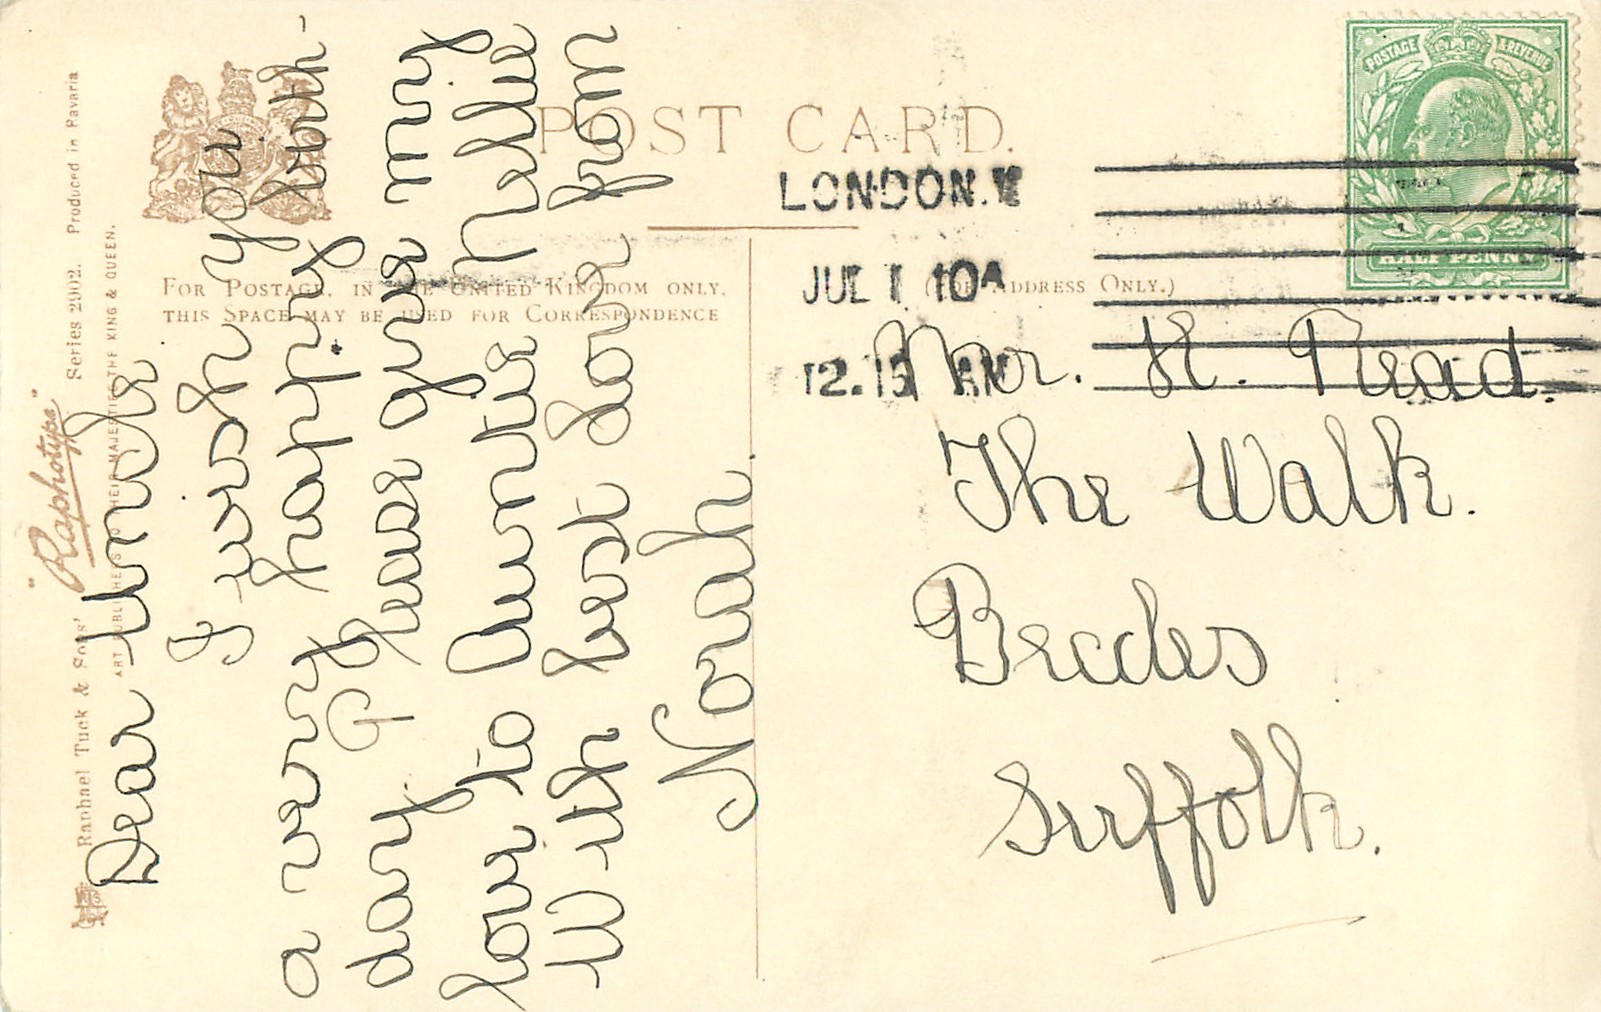 Raphael Tuck & Sons' "Raphotype" Series 2902. Produced in Bavaria
ART PUBLISHERS TO THEIR MAJESTIES THE KING & QUEEN.
POST CARD.
FOR POSTAGE, IN THE UNITED KINGDOM ONLY,
THIS SPACE MAY BE USED FOR CORRESPONDENCE
(FOR ADDRESS ONLY.)
POSTAGE & REVENUE
HALF PENNY
LONDON. W
JUL 1 10A
12.15 AM
Dear Uncle
I wish you
a very happy birth-
day. Please give my
love to Auntie Nellie
With best love from
Norah
Mr. H. Read.
The Walk.
Beccles
Suffolk.